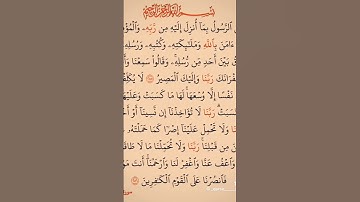 بِسْمِ ٱللَّهِ ٱلرَّحْمَٰنِ ٱلرَّحِيمِ
ٱلرَّسُولُ بِمَآ أُنزِلَ إِلَيْهِ مِن رَّبِّهِۦ وَٱلْمُؤْ
ءَامَنَ بِٱللَّهِ وَمَلَٰٓئِكَتِهِۦ وَكُتُبِهِۦ وَرُسُلِهِۦ
بَيْنَ أَحَدٍ مِّن رُّسُلِهِۦ ۚ وَقَالُوا۟ سَمِعْنَا وَأَ
غُفْرَانَكَ رَبَّنَا وَإِلَيْكَ ٱلْمَصِيرُ ۝ لَا يُكَلِّفُ
نَفْسًا إِلَّا وُسْعَهَا ۚ لَهَا مَا كَسَبَتْ وَعَلَيْهَا
كْتَسَبَتْ ۗ رَبَّنَا لَا تُؤَاخِذْنَآ إِن نَّسِينَآ أَوْ أَخْ
وَلَا تَحْمِلْ عَلَيْنَآ إِصْرًا كَمَا حَمَلْتَهُۥ
مِن قَبْلِنَا ۚ رَبَّنَا وَلَا تُحَمِّلْنَا مَا لَا طَاقَ
وَٱعْفُ عَنَّا وَٱغْفِرْ لَنَا وَٱرْحَمْنَآ ۚ أَنتَ مَوْ
فَٱنصُرْنَا عَلَى ٱلْقَوْمِ ٱلْكَٰفِرِينَ